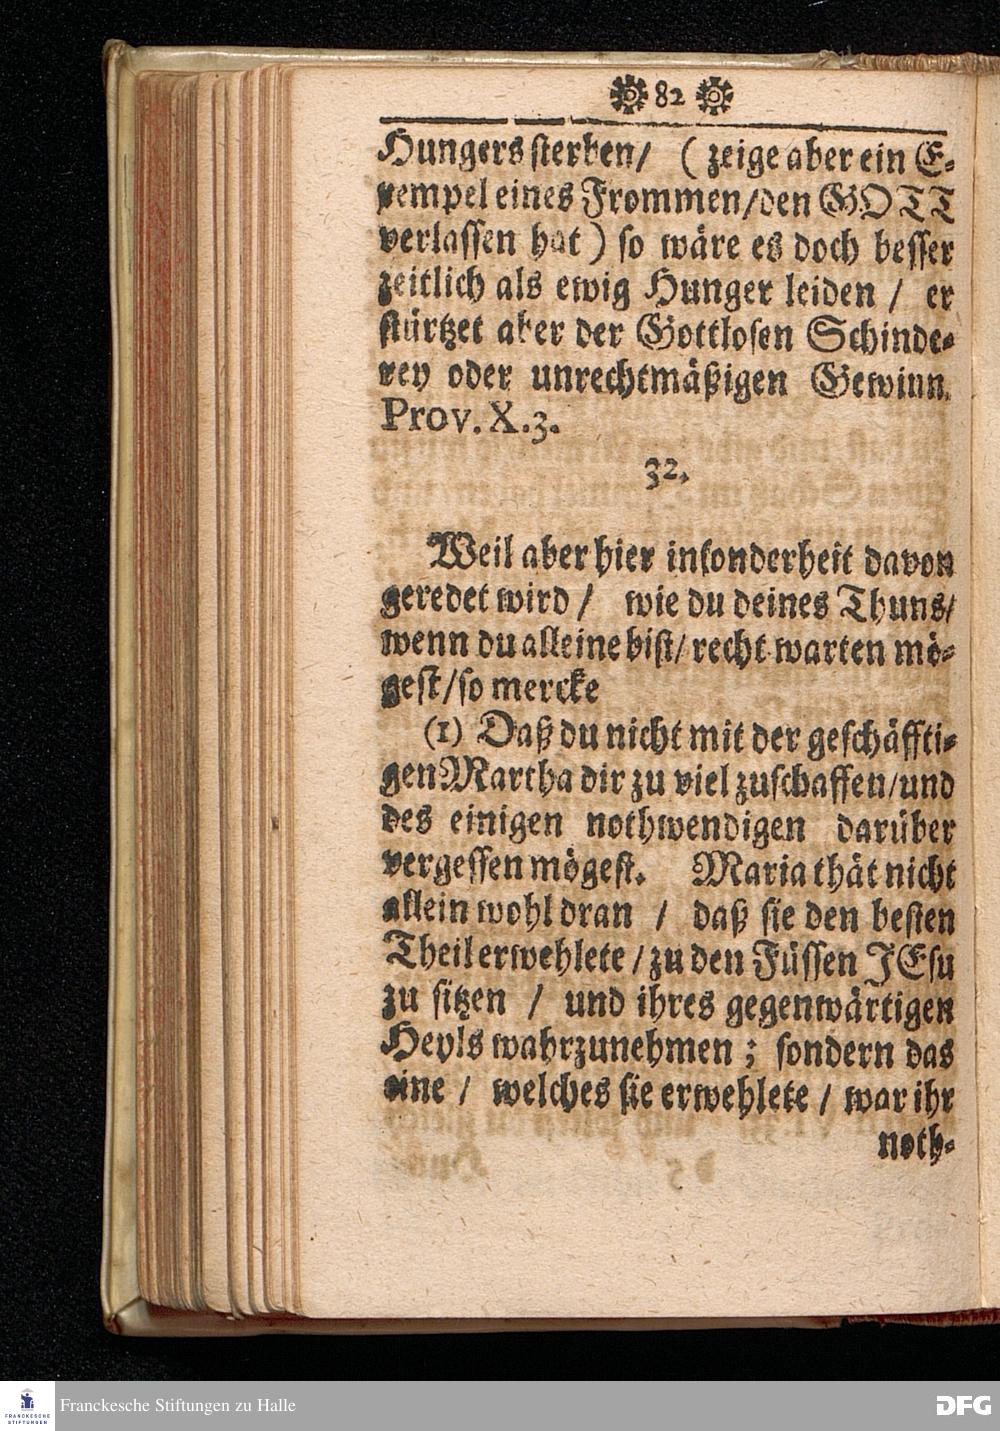 82
Hungers sterben/ (zeige aber ein E-
xempel eines Frommen/den GOTT
verlassen hat) so wäre es doch besser
zeitlich als ewig Hunger leiden / er
stürtzet aber der Gottlosen Schinde-
rey oder unrechtmäßigen Gewinn.
Prov. X. 3.
32.
Weil aber hier insonderheit davon
geredet wird / wie du deines Thuns/
wenn du alleine bist/ recht warten mö-
gest/so mercke
(1) Daß du nicht mit der geschäffti-
gen Martha dir zu viel zuschaffen/und
des einigen nothwendigen darüber
vergessen mögest. Maria thät nicht
allein wohl dran / daß sie den besten
Theil erwehlete / zu den Füssen JEsu
zu sitzen / und ihres gegenwärtigen
Heyls wahrzunehmen ; sondern das
eine / welches sie erwehlete / war ihr
noth-
FRANCKESCHE
STIFTUNGEN
Franckesche Stiftungen zu Halle
DFG